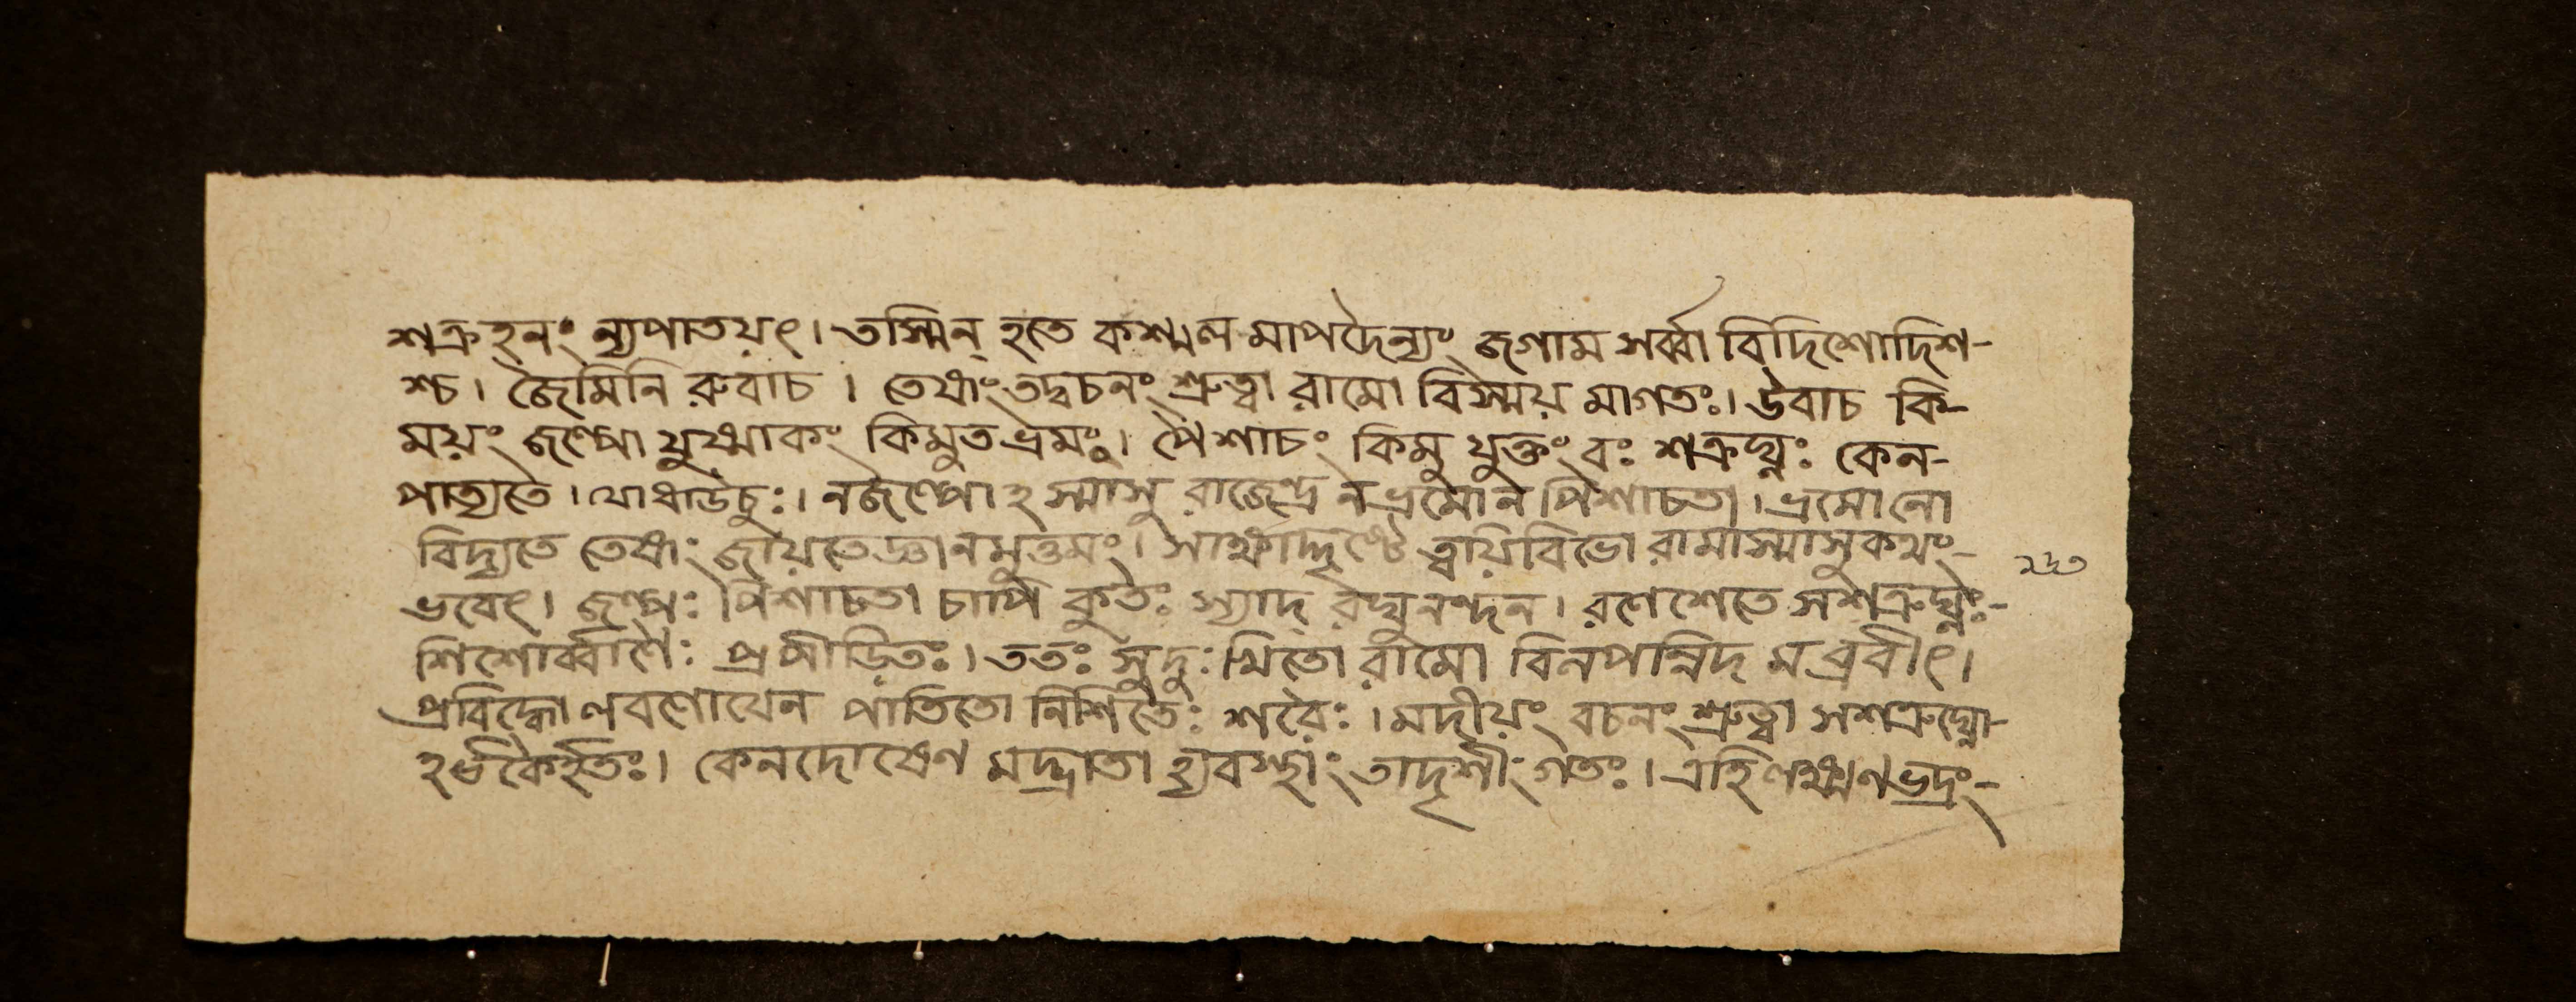 শত্রুহনং ন্যপাতয়ৎ। তস্মিন্ হতে কশ্মল মাপদৈন্যং জগাম সর্ব্বা বিদিশোদিশ-
শ্চ। জৈমিনি রুবাচ। তেষাং তদ্বচনং শ্রুত্বা রামো বিস্ময় মাগতঃ। উবাচ কি-
ময়ং জল্পো যুষ্মাকং কিমুত ভ্রমঃ। পৈশাচং কিমু যুক্তং বঃ শত্রুঘ্নঃ কেন-
পাত্যতে। যোধাউচুঃ। নজল্পোঽস্মাসু রাজেন্দ্র নভ্রমোন পিশাচতা। ভ্রমোনো
বিদ্যতে তেষাং জায়তেজ্ঞানমুত্তমং। সাক্ষাদ্দৃষ্টে ত্বয়িবিভো রামাস্মাসুকথং-
ভবেৎ। জল্পঃ পিশাচতা চাপি কুতঃ স্যাদ্ রঘুনন্দন। রণেশেতে সশত্রুঘ্নঃ-
শিশোর্ব্বাণৈঃ প্রপীড়িতঃ। ততঃ সুদুঃখিতো রামো বিলপন্নিদ মব্রবীৎ।
প্রবিদ্ধোলবণোযেন পাতিতো নিশিতৈঃ শরৈঃ। মদীয়ং বচনং শ্রুত্বা সশত্রুঘ্নো-
ঽর্ভকৈর্হতঃ। কেনদোষেণ মদ্ভ্রাতা হ্যবস্থাং তাদৃশীং গতঃ। এহি লক্ষ্মণভদ্রং-